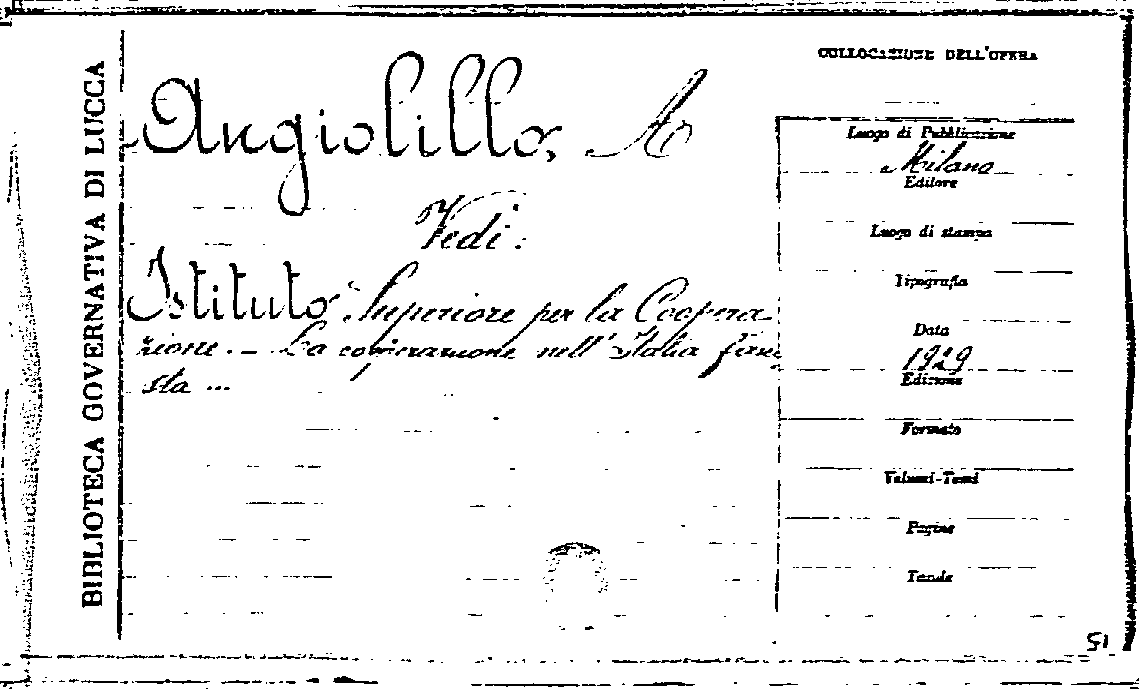 BIBLIOTECA GOVERNATIVA DI LUCCA
Angiolillo, A
Vedi:
Istituto Superiore per la Coopera-
zione. - La cooperazione nell'Italia fasci
sta ...
COLLOCAZIONE DELL'OPERA
Luogo di Pubblicazione
Milano
Editore
Luogo di stampa
Tipografia
Data
1929
Edizione
Formato
Volumi-Tomi
Pagine
Tavole
51